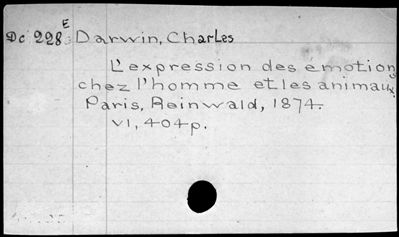 E
Dc 228 Darwin, Charles
L'expression des émotions
chez l'homme et les animaux.
Paris, Reinwald, 1874.
VI, 404p.